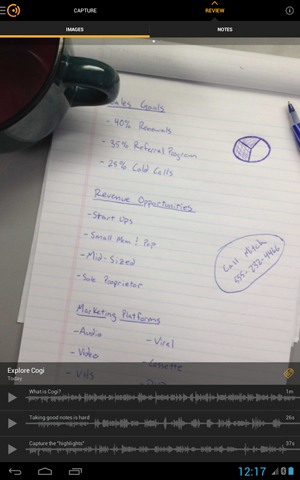 CAPTURE
REVIEW
IMAGES
NOTES
Sales Goals
- 40% Renewals
- 35% Referral Program
- 25% Cold Calls
Revenue Opportunities
- Start Ups
- Small Mom & Pop
- Mid-Sized
- Sole Proprietor
Call Mitch
Marketing Platforms
- Audio
- Viral
- Video
- Cassette
- VHS
Explore Cogi
Today
What is Cogi?
1m
Taking good notes is hard
26s
Capture the "highlights"
37s
12:17